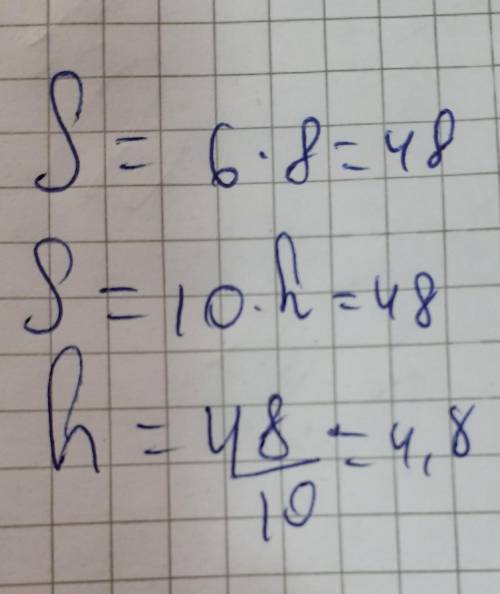 S = 6 · 8 = 48
S = 10 · h = 48
h = 48/10 = 4,8